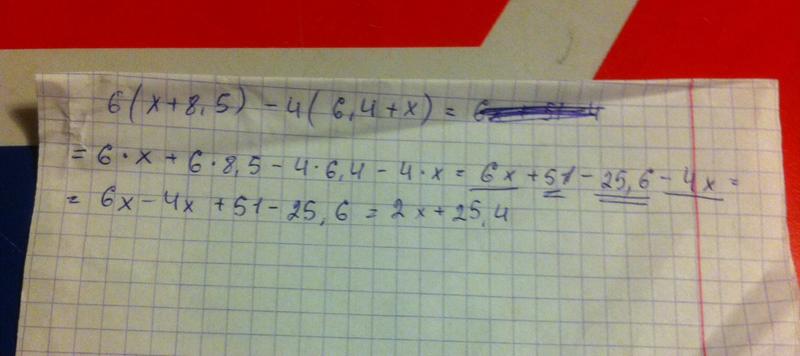 6(x+8,5) -4(6,4+x) =
= 6·x + 6·8,5 - 4·6,4 - 4·x = 6x + 51 - 25,6 - 4x =
= 6x - 4x + 51 - 25,6 = 2x + 25,4